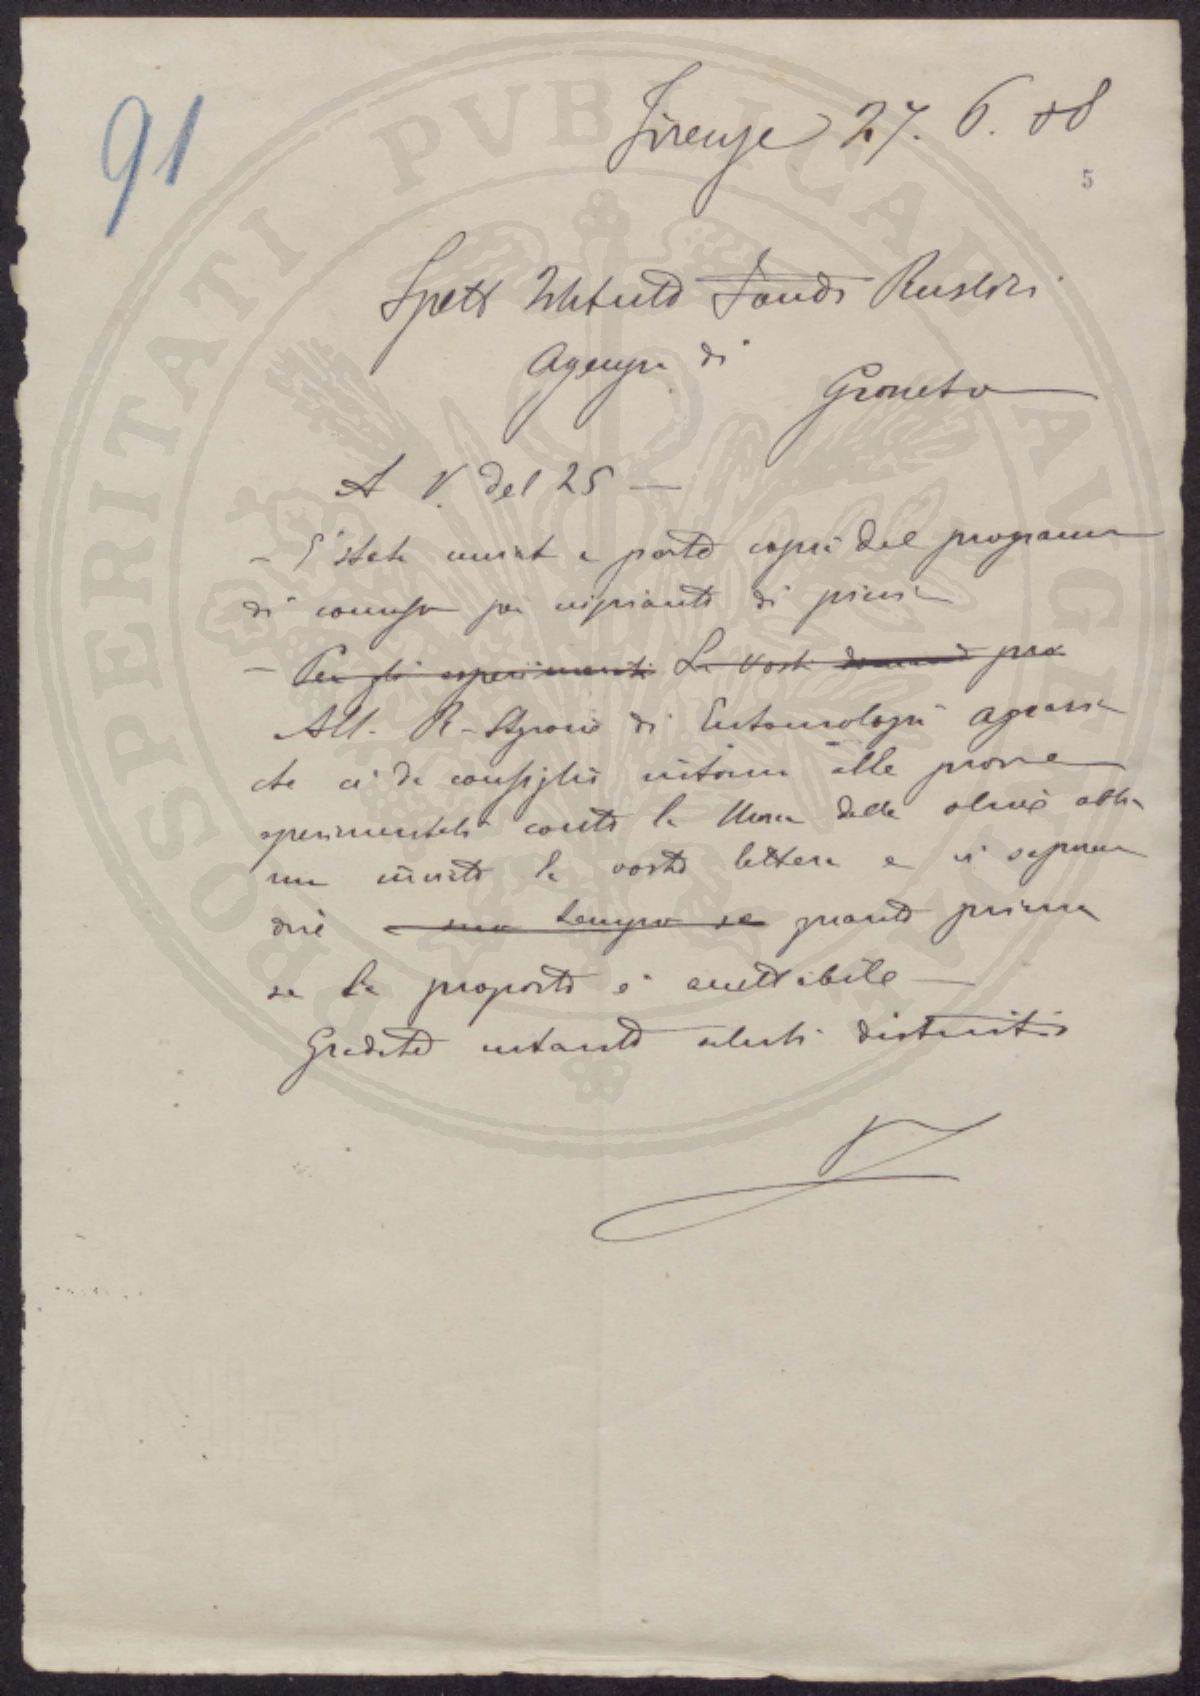 91
Firenze 27. 6. 08
5
Spett Istituto Fondi Rustici
Agenzia di
Grosseto
A V. del 25 —
- È stata inviat a parte copia del programma
di concorso per impianti di
- Per gli esperimenti La Vostr domanda pro
All. R. Stazione di Entomologia agraria
che ci da consiglio intorno alle prove
sperimentali contro la Mosca delle olive abbia
mo inviato la vostra lettera e vi sapremo
dire a suo tempo se quanto prima
se la proposta è accettabile —
Gradite intanto saluti distinti
PROSPERITATI PVBLICAE AVGENDAE